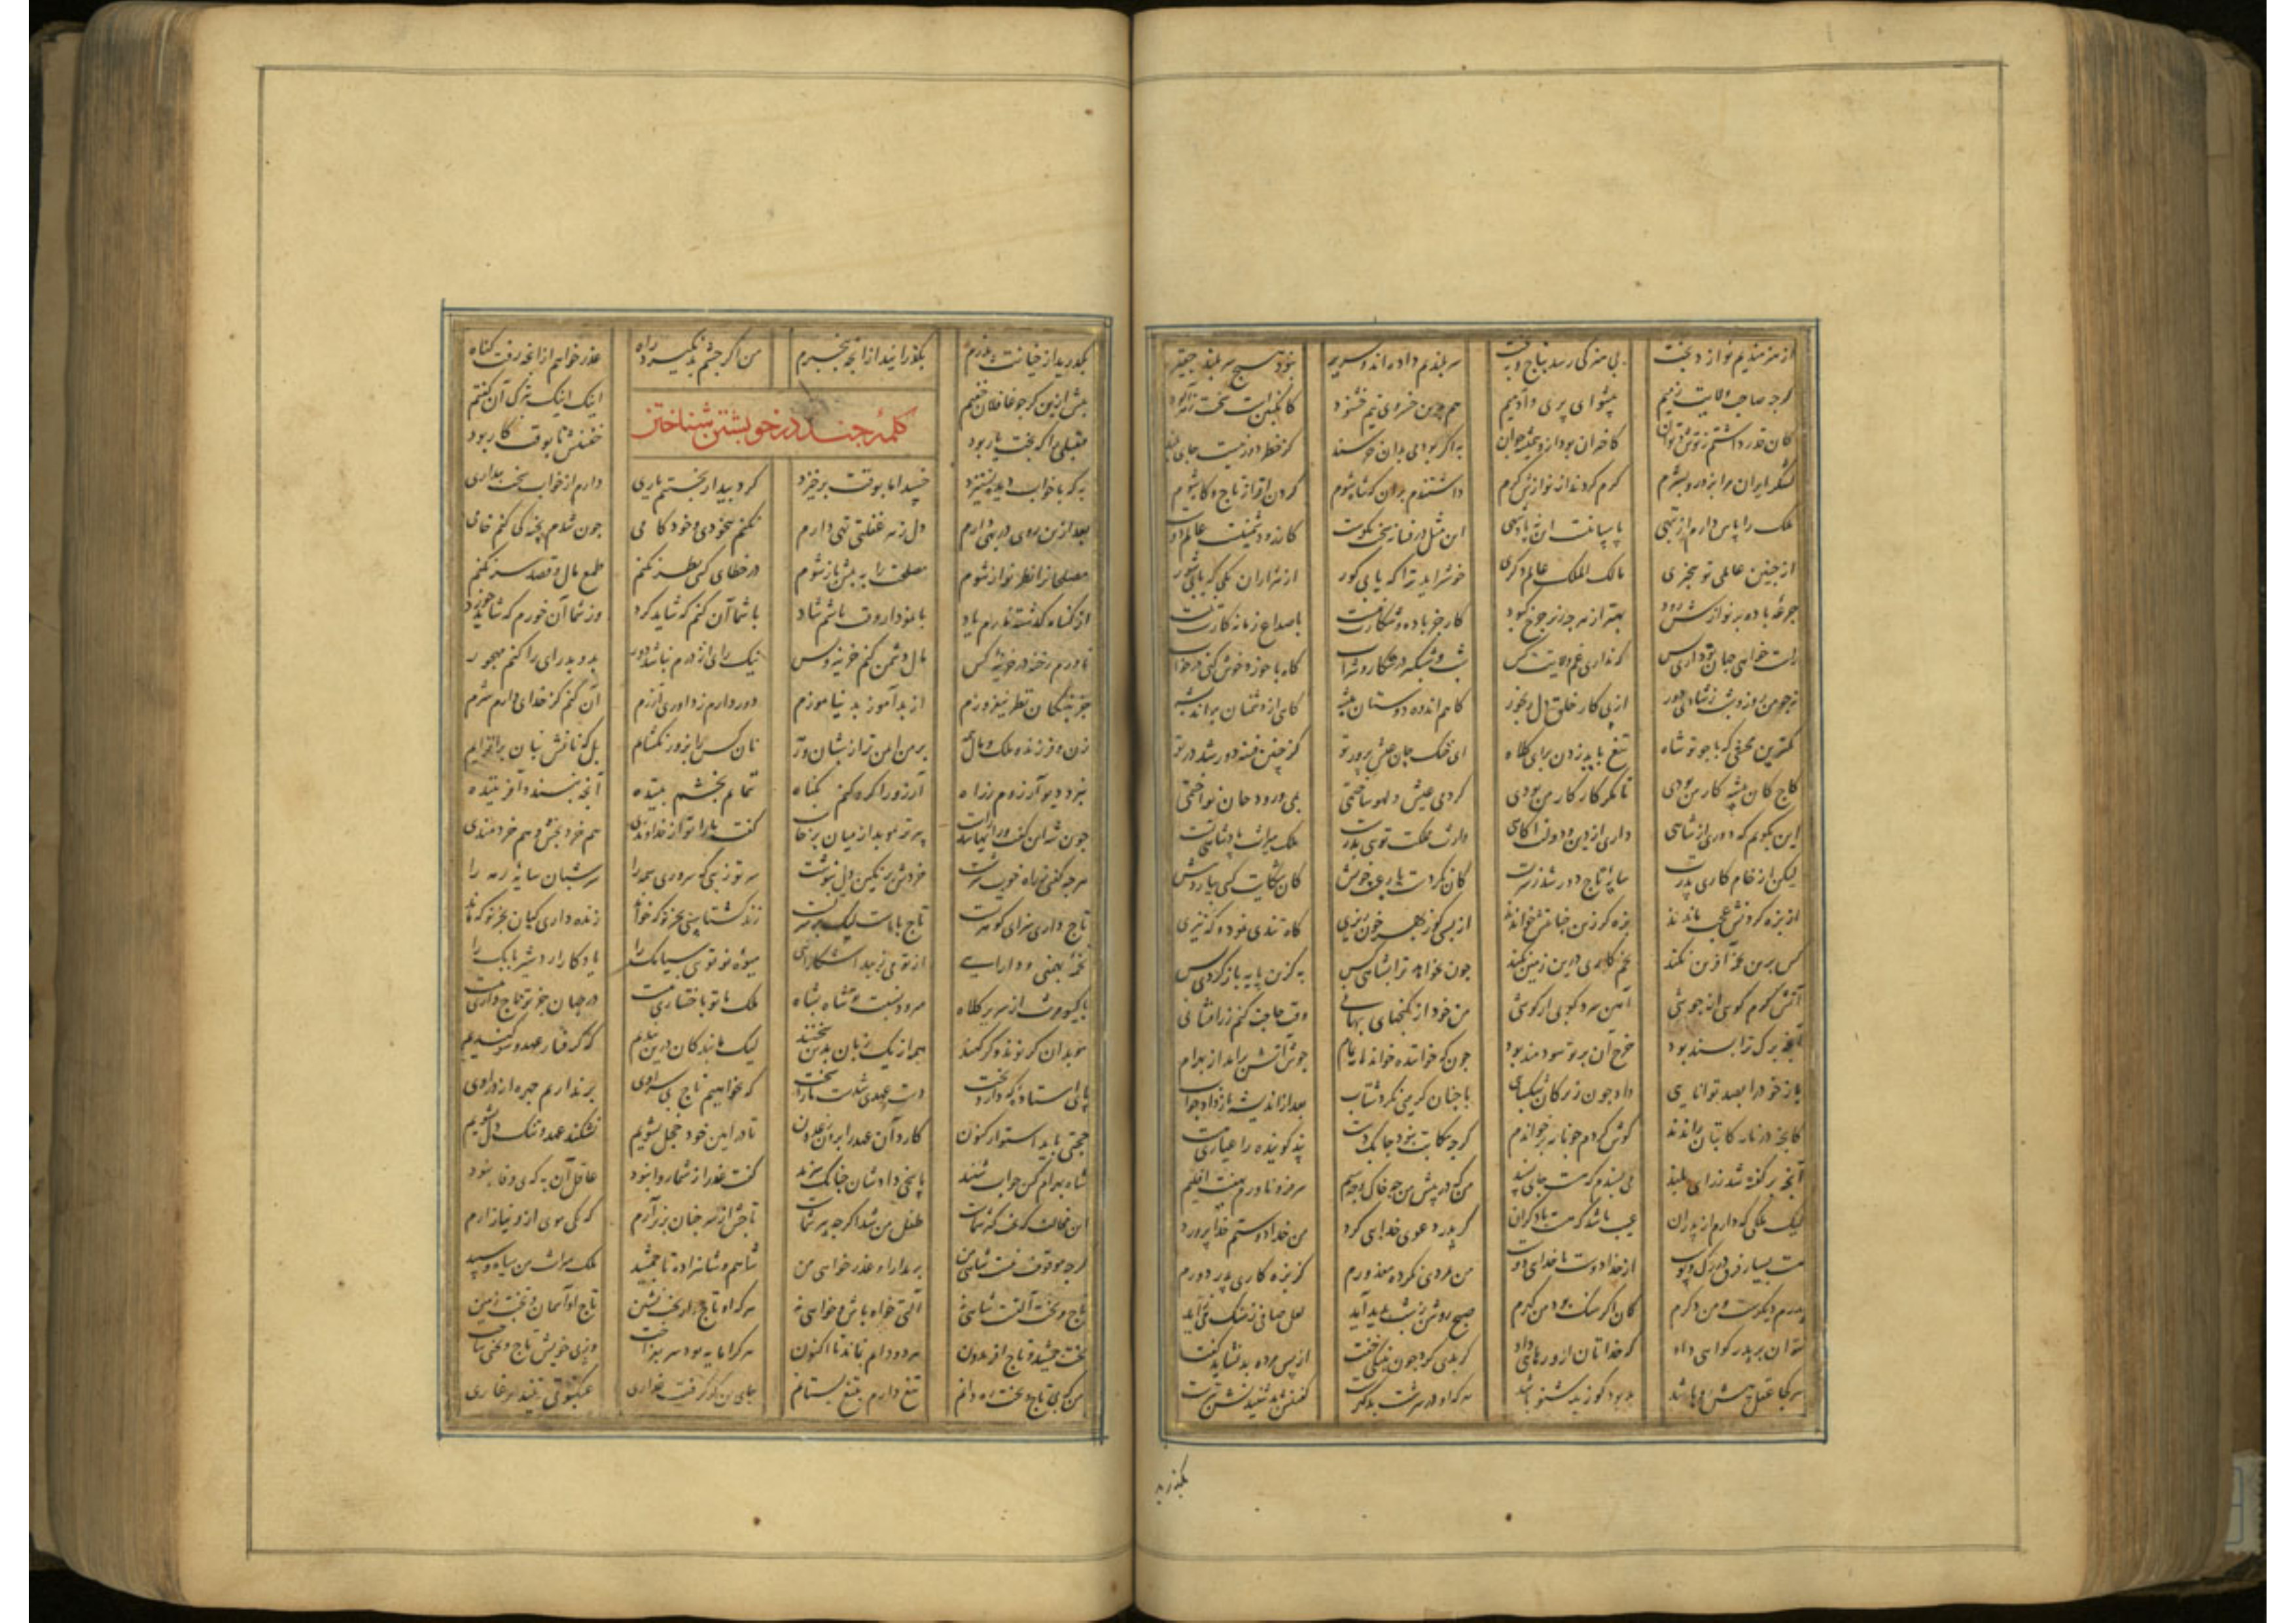 از هنرمندیم نواز د بخت بی هنر کی رسد بتاج و بتخت سر بلندیم داده اند و سریر نبود هیچ سر بلند حقیر
گرچه صاحب ولایت زمیم پیشوای پری و آدمیم هم درین خسروی نیم خشنود کانگبین است سخت زهرآلود
کان قدر داشتم ز توش و توان کاخران بود ازو همیشه جوان به اگر بودمی بدان خرسند کز خطر دور نیست جای بلند
لشکر ایران مرا بزور و بشرم کرم کردند از نوازش گرم داشتندم بران که شاه شوم گردن افراز تاج و گاه شوم
ملک را پاس دارم از تبهی پاسبانیست این نه پادشهی این مثل در فسانه سخت نکوست کارزو دشمنست عالم دوست
از چنین عالمی تو بیخبری مالک الملک عالم دگری خوشتر آید ترا کبابی گور از هزاران یکی که یابی شور
جرعه باده بر نوازش رود بهتر از هرچه زیر چرخ کبود کار جز باده و شکارت نیست با صداع زمانه کارت نیست
راست خواهی جهان تو داری و بس که نداری غم ولایت کس شب و شبگیر در شکار و شراب گاه با خورد خوش گهی در خواب
نه چو من روز و شب ز شادی دور از پی کار خلق دل رنجور گاهم اندوه دوستان پیشه گاهی از دشمنان پراندیشه
کمترین محنتی که با چو تو شاه تیغ باید زدن برای کلاه ای خنک جان عیش پرور تو کز چنین فتنه دور شد در تو
کاج کان پیشه کار من بودی تا مگر کار کار من بودی کردمی عیش و لهو ساختمی بمی و رود جان نواختمی
این نگویم که دوری از شاهی داری از دین و دولت آگاهی وارث مملکت تویی بدرست ملک میراث پادشاهی تست
لیکن از خام کاری پدرت سایه تاج دور شد ز سرت کان نکردست با رعیت خویش کان شکایت کسی نیارد پیش
از بزه کردنش عجب ماندند بزه گر زین جنایتش خواندند از بسی گوزنهی خون ریزی گاه تندی نمود و گه تیزی
کس برین تخمه آفرین نکند تخم کاری درین زمین نکند چون نخواهد ترا بشاهی کس به کزین پایه باز گردی پس
آتش گرم گوی ار جوشی آهن سرد کوبی ار کوشی من خود از گنجهای پنهانی وقت حاجت کنم زرافشانی
آنچه برگ ترا بسند بود خرج آن بر تو سودمند بود چون که خواننده خواند نامه تمام جوش آتش برآمد از بهرام
باز خود را بصد توانایی داد چون زیرکان شکیبایی با چنان گرمیی نکرد شتاب بعد از اندیشه باز داد جواب
کانچه در نامه کاتبان راندند گوش کردم چو نامه برخواندم گرچه کاتب نبود چابک دست پند گوینده را عیاری هست
آنچه بر گفته شد ز رای بلند می پسندم که هست جای پسند من که در پیش من چه خاک و چه سیم سر فرو ناورم بهفت اقلیم
لیک ملکی که دارم از پدران عیب باشد که هست با دگران گر پدر دعوی خدایی کرد من خدا دوستم خدا پرورد
هست بسیار فرق در رگ و پوست از خدا دوست تا خدایی دوست من بجرمی نکرده معذورم کز بزه کاری پدر دورم
پدرم دیگرست و من دگرم کان اگر سنگ بود من گهرم صبح روشن ز شب پدید آید لعل صافی ز سنگ می زاید
نتوان بر پدر گواهی داد که خداتان ازو رهایی داد گر بدی کرد چون بنیکی خفت از پس مرده بد نشاید گفت
هر کجا عقل پیش رو باشد بد بود گو ز بد شنو باشد هر که او در سرشت بد گهرست گفتنش بد شنیدنش بترست
بگذرید
بگذرید از خیانت پدرم بگذرانید از آنچه بیخبرم من اگر چشم بد نگیرد راه عذر خواهم از آنچه رفت گناه
پیش ازین گرچه غافلان خفتم اینک اینک بترک آن گفتم
کلمه چند در خویشتن شناختن
مقبلی را که بخت یار بود خفتنش تا بوقت کار بود
به که با خواب دیده نستیزد خسپد اما بوقت برخیزد کرد بیدار بختیم یاری دارم از خواب بخت بیداری
بعد ازین روی در بهی دارم دل ز هر غفلتی تهی دارم نکنم بیخودی و خودکامی چون شدم پخته کی کنم خامی
مصلحانرا نظر نواز شوم مصلحت را به پیش باز شوم در خطای کسی نظر نکنم طمع مال و قصد سر نکنم
از گناه گذشته نارم یاد با نمودار وقت باشم شاد با شما آن کنم که شاید کرد وز شما آن خورم که شاید خورد
ناورم رخنه در خزینه کس مال دشمن کنم خزینه و بس نیک رای از درم نباشد دور بد و بد رای را کنم مهجور
جز به نیکان نظر نیفروزم از بدآموز بد نیاموزم دور دارم ز داوری آزرم آن کنم کز خدای دارم شرم
زن و فرزند و ملک و مال همه بر من ایمن تر از شبان و رمه نان کس را بزور نگشایم بلکه نانش بنان برافزایم
نبرد دیو آرزوم ز راه آرزو را گرو کنم بگناه ننمایم بچشم بیننده آنچه نپسند آفریننده
چون شه این گفت و رایها شد راست پیرتر موبد از میان برخاست گفت ما را تو از خداوندی هم خرد بخش و هم خردمندی
هرچه گفتی ز راه خوب سرشت خردش بر نگین دل بنوشت سر تو زیبی که سروری همه را سر شبان سایه رمه را
تاج داری سزای گوهر تست تاج با ماست لیک بر سر تست زند گشتاسپی بجز تو که خواند زنده دار کیان بجز تو که ماند
تخمه بهمنی و دارایی از تو می زیبد آشکارایی میوه نو تویی سیامک را یادگار اردشیر بابک را
با کیومرث از سریر و کلاه میرود نسبت تو شاه بشاه ملک با تو باختیاری نیست در جهان جز تو تاجداری نیست
موبدان گر نوند و گر کهنند همه از یک زبان بدین سخنند لیک ما بندگان درین بندیم که گرفتار عهد و سوگندیم
با نشستاده که دارد تخت دست عهدی شدست ما را سخت که نخواهیم تاج بی سر او برنتابیم چهره از در او
حجتی باید استوار کنون کارد آن عهد را برون ز عدون تا در آیین خود خجل نشویم نشکند عهد و تنگدل نشویم
شاه بهرام کین جواب شنید پاسخی دادشان چنانکه سزید گفت عذر از شما روا نبود عاقل آن به که بی وفا نبود
این مخالف که تخت گیر شماست طفل من شد اگرچه پیر شماست تاجش از سر چنان بزیر آرم که یکی موی ازو نیازارم
گرچه موقوف نیست شاهی من بر مدارا و عذر خواهی من شاهم و شاهزاده تا جمشید ملک میراث من سیاه و سپید
تاج و تخت آلتست شاهی نه آلتی خواه باش و خواهی نه هر که او تاج دار و تخت نشین تاج او آسمان و تخت زمین
تخت جمشید و تاج افریدون هر دو دایم نماند تا اکنون هر که را مایه بود سر بفراخت وز پی خویش تاج و تختی ساخت
من که بر تاج و تخت ره دانم تیغ دارم بتیغ بستانم جای من گر گرفت غداری عنکبوتی تنید بر غاری